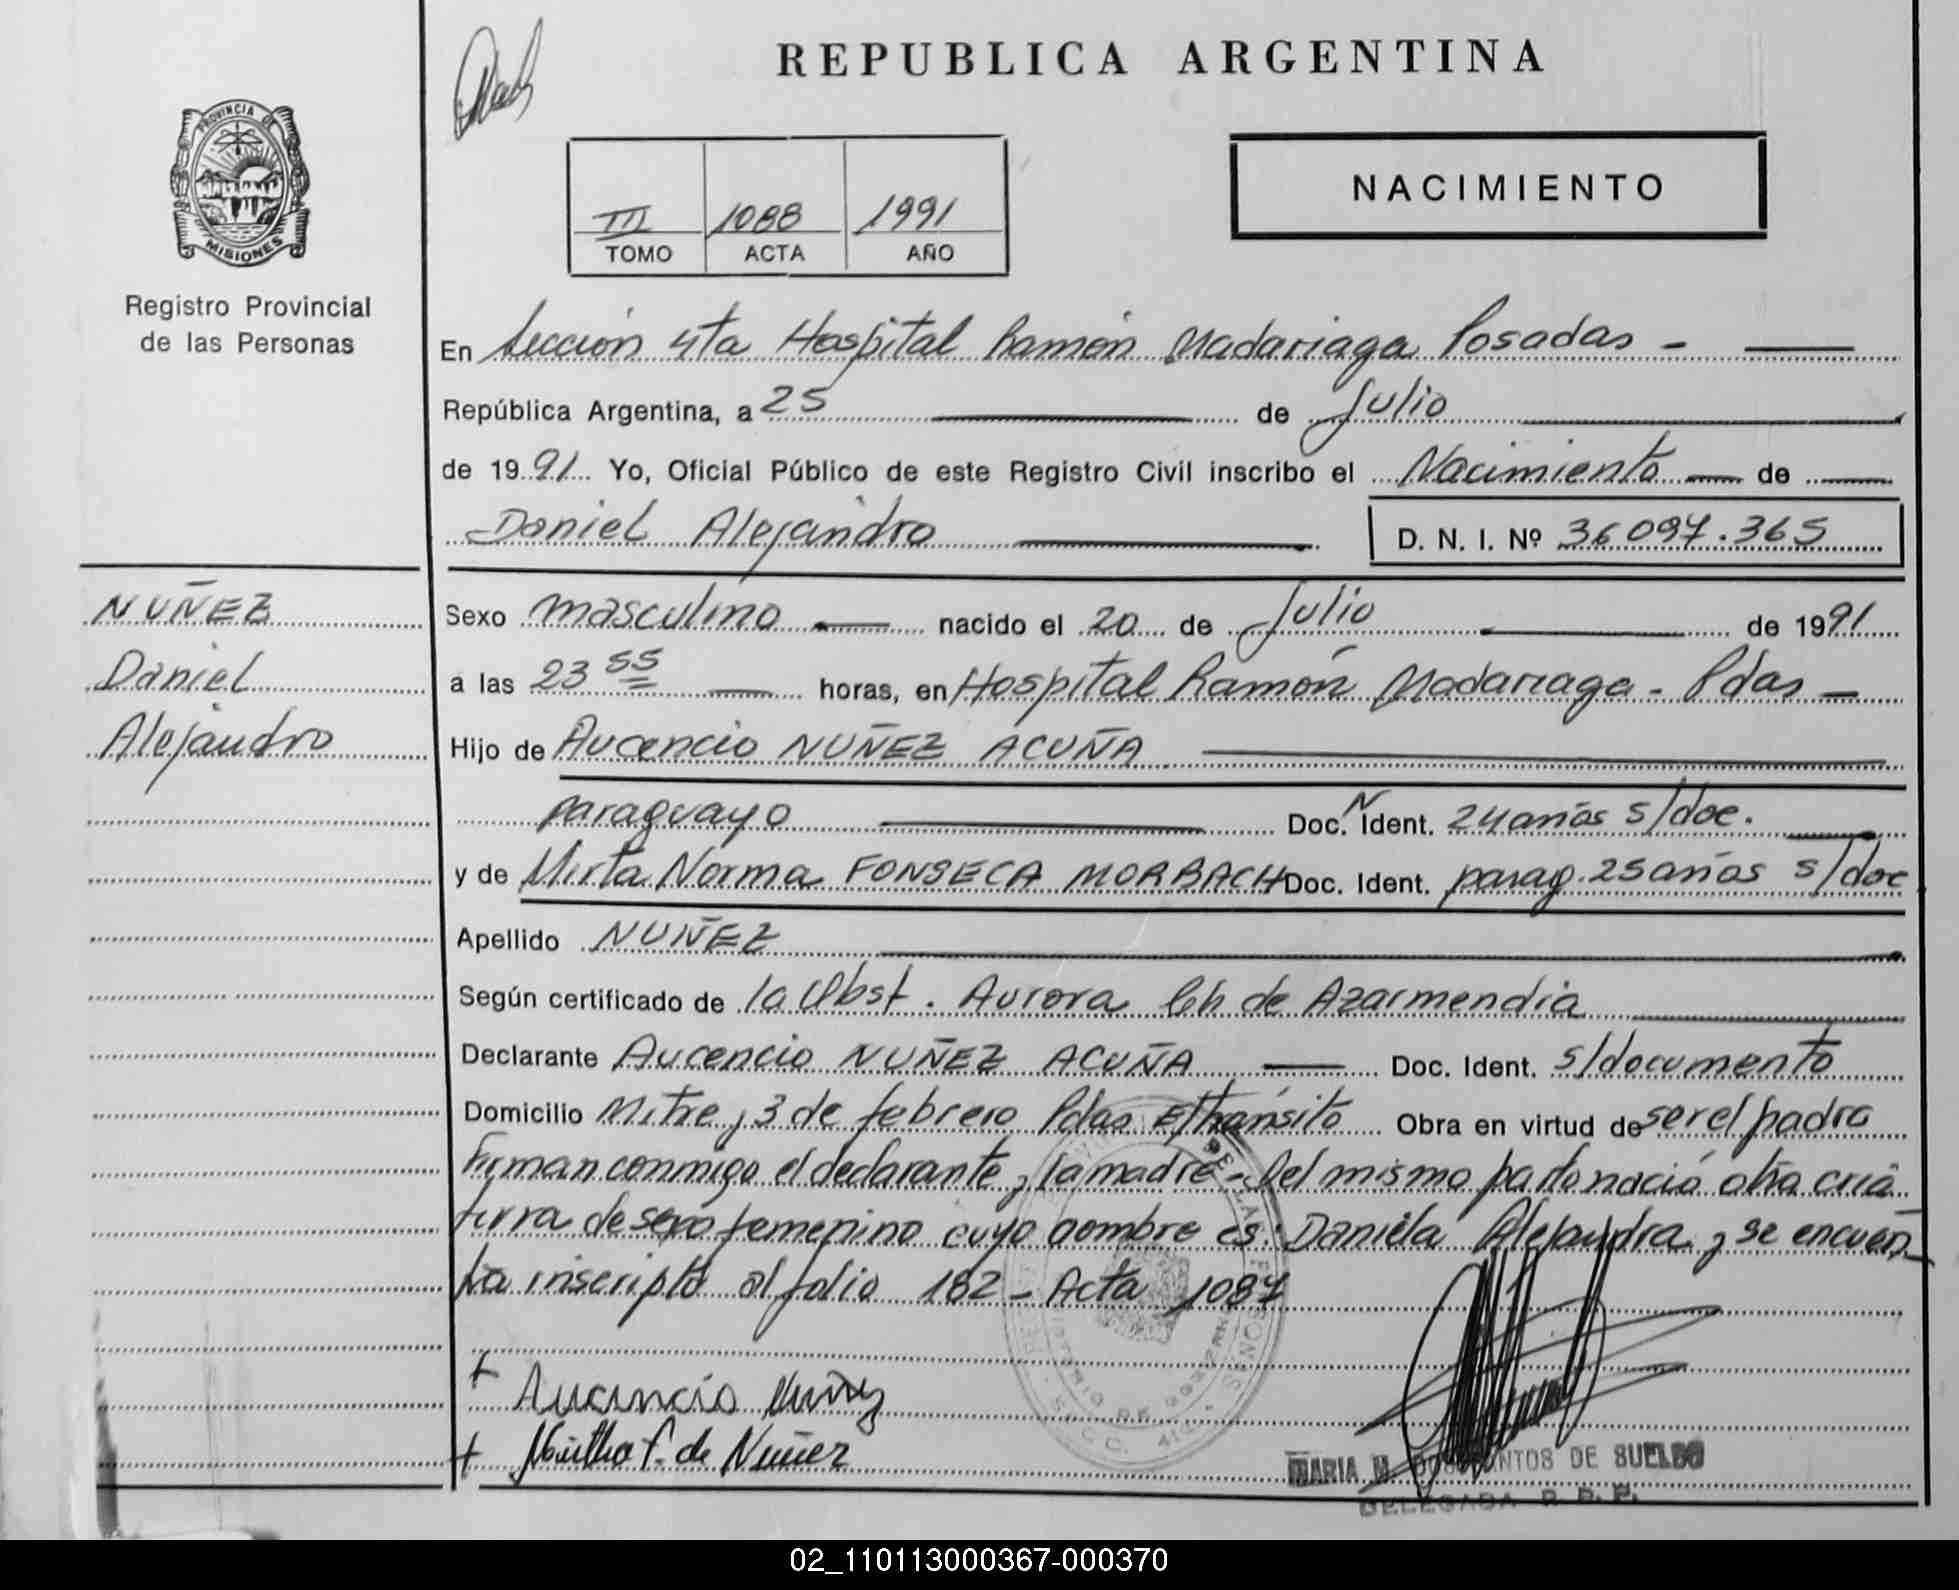 REPUBLICA ARGENTINA
PROVINCIA DE
MISIONES
Registro Provincial
de las Personas
III 1088 1991
TOMO ACTA AÑO
NACIMIENTO
En Sección 4ta Hospital Ramón Madariaga Posadas -
República Argentina, a 25 de Julio
de 1991 Yo, Oficial Público de este Registro Civil inscribo el Nacimiento de
Daniel Alejandro D. N. I. Nº 36097.365
NUÑEZ
Daniel
Alejandro
Sexo masculino nacido el 20 de Julio de 1991
a las 23 55 horas, en Hospital Ramón Madariaga - Pdas -
Hijo de Aucencio NUÑEZ ACUÑA
paraguayo Doc. Ident. 24 años s/doc.
y de Mirta Norma FONSECA MORBACH Doc. Ident. parag. 25 años s/doc
Apellido NUÑEZ
Según certificado de la Obst. Aurora Ch de Azarmendia
Declarante Aucencio NUÑEZ ACUÑA Doc. Ident. s/documento
Domicilio Mitre y 3 de febrero Pdas E/tránsito Obra en virtud de ser el padre
Firman conmigo el declarante y la madre - Del mismo parto nació otra cria
tura de sexo femenino cuyo nombre es: Daniela Alejandra y se encuen
tra inscripto al folio 182 - Acta 1087
+ Aucencio Nuñez
+ f. de Nuñez
MARIA M. DOS SANTOS DE SUELDO
DELEGADA R. P. P.
02_110113000367-000370